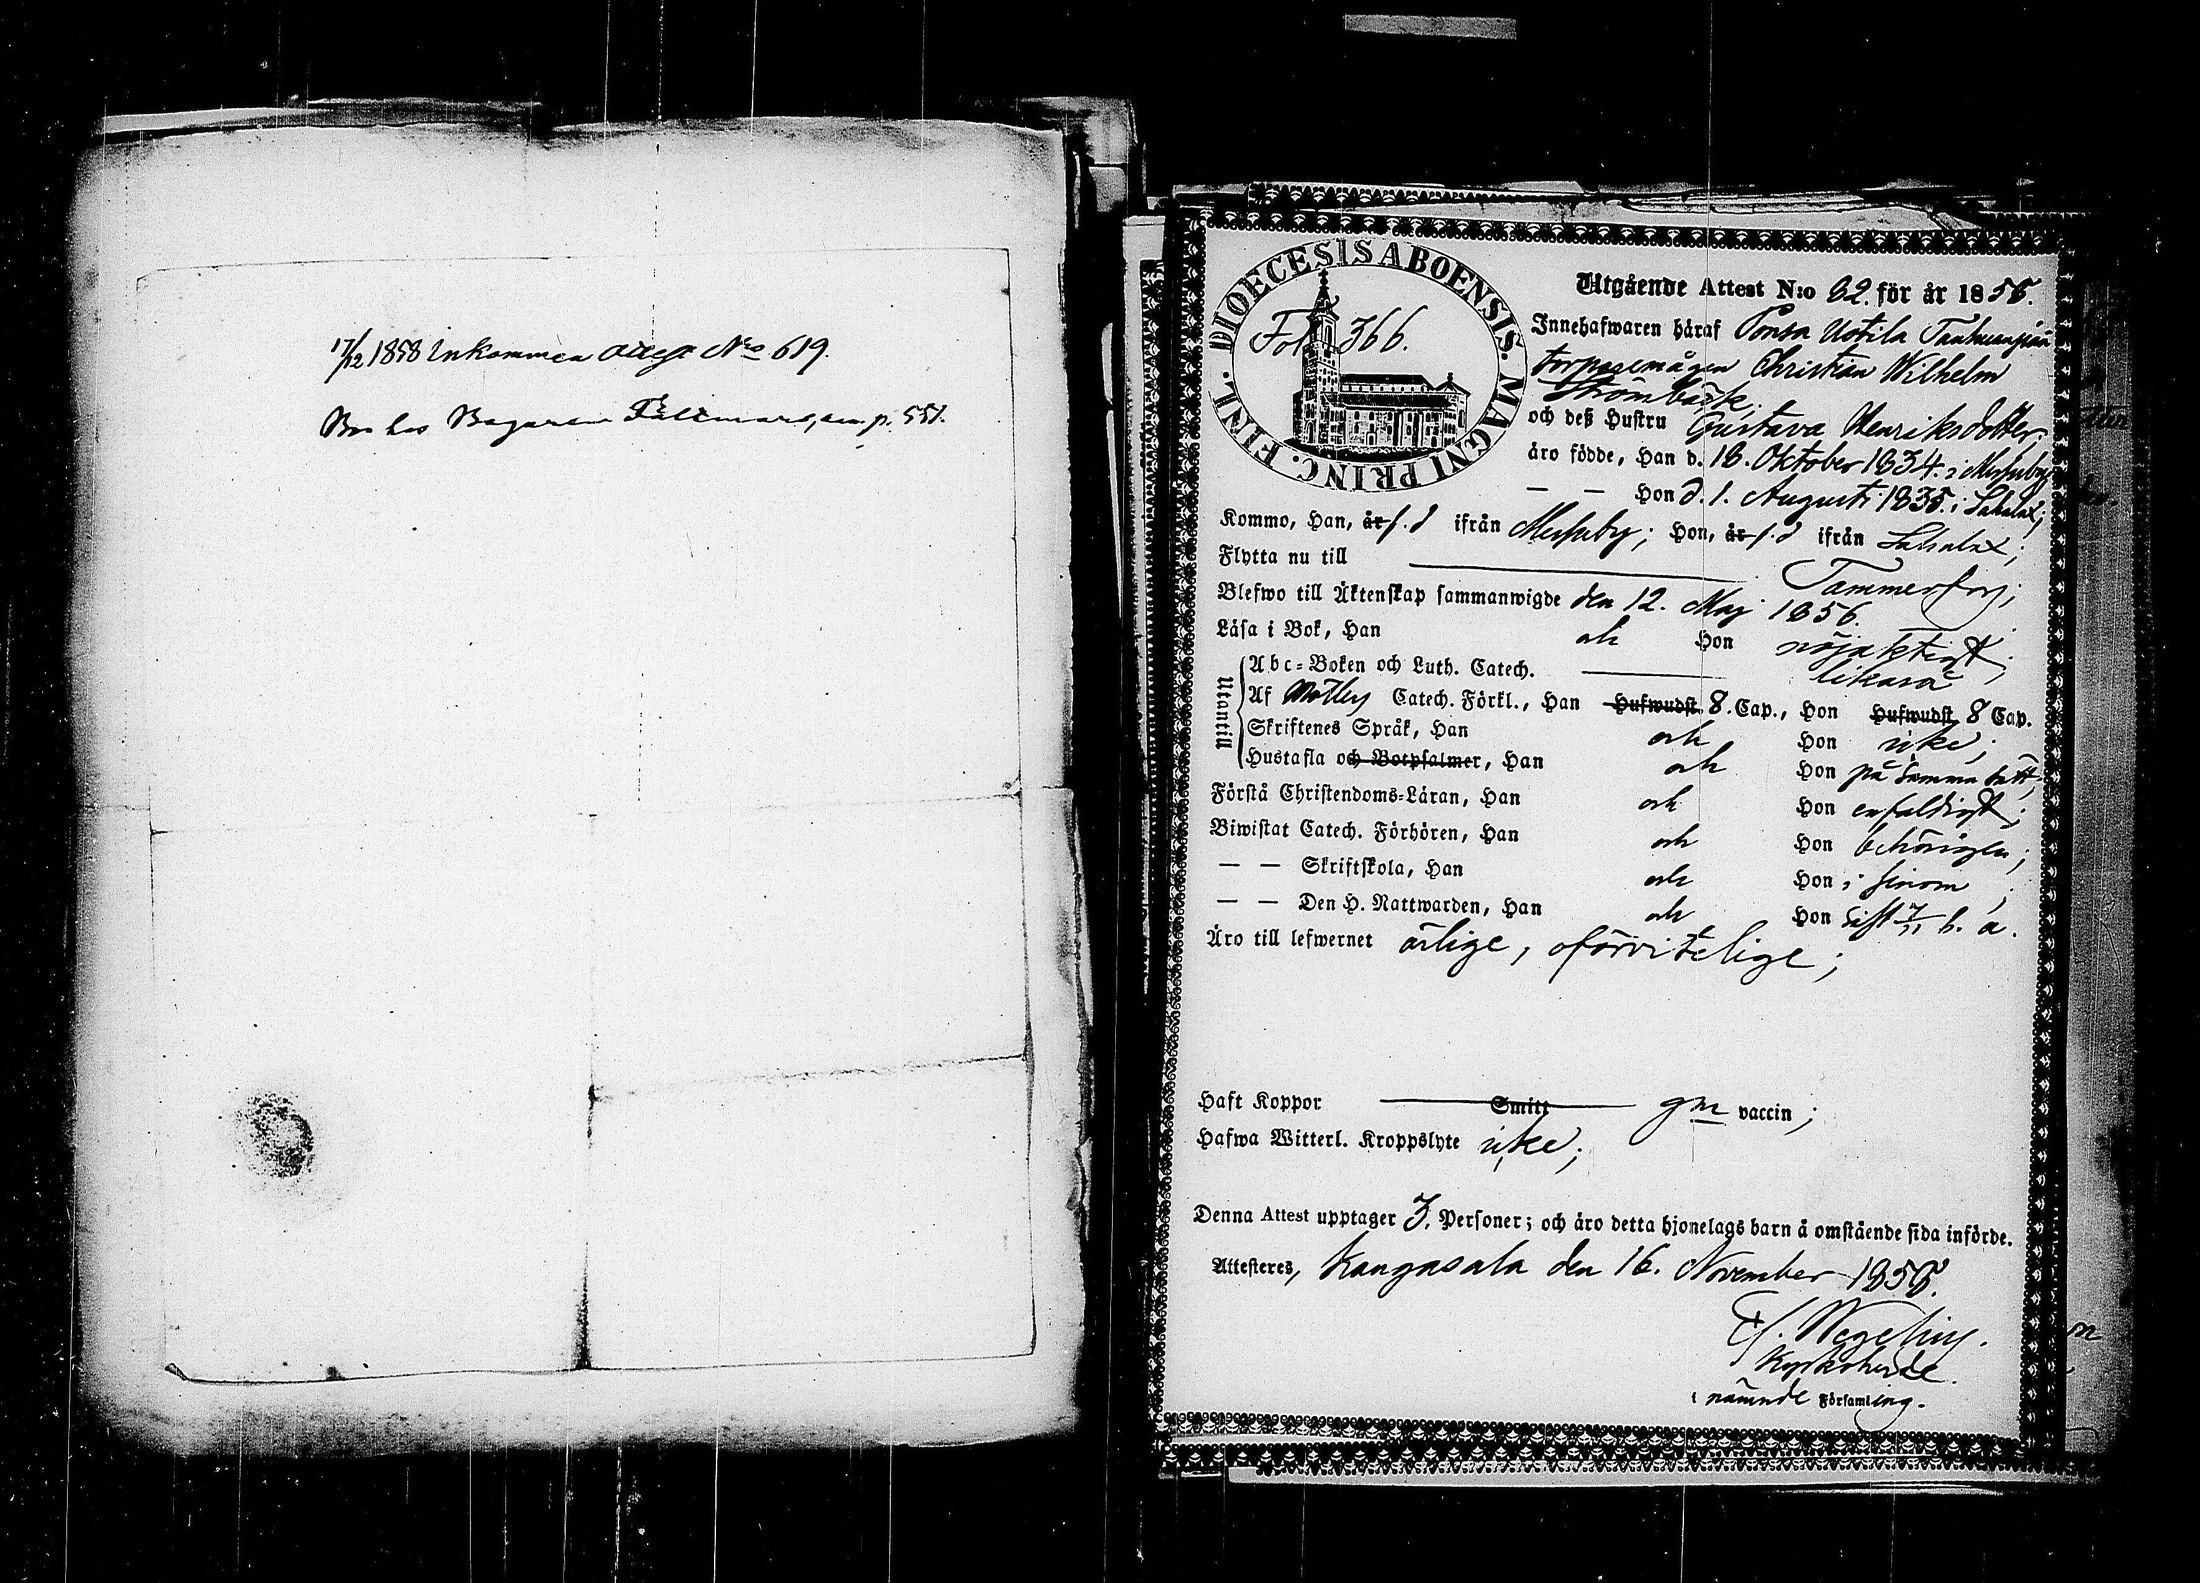 17/12 1858 Inkommen attest No 619.
Bor hos Bagaren p. 551.
DIOECESIS ABOENSIS. MAGNI PRINC. FINL.
Fol. 366.
Utgående Attest N:o 62. för år 1858.
Innehafwaren häraf Ponsa Uotila
torparemågen Christian Wilhelm
Strömbäck
och deß Hustru Gustava Henriksdotter,
äro födde, Han d. 18. Oktober 1834. i Messuby
— — Hon d. 1. Augusti 1835. i Sahalax;
Kommo, Han, år f. d ifrån Messuby; Hon, år f. d ifrån Sahalax;
Flytta nu till Tammerfors;
Blefwo till Äktenskap sammanwigde den 12. Maj 1856.
Läsa i Bok, Han och Hon nöjaktigt;
Utantill
Abc-Boken och Luth. Catech. likaså
Af Möllers Catech. Förkl., Han Hufwudst. 8. Cap., Hon Hufwudst. 8 Cap.
Skriftenes Språk, Han och Hon icke;
Hustafla och Botpsalmer, Han och Hon på samma sätt;
Förstå Christendoms-Läran, Han och Hon enfaldigt;
Biwistat Catech. Förhören, Han och Hon behörigen;
— — Skriftskola, Han och Hon i sinom
— — Den H. Nattwarden, Han och Hon sist 7/11 h. a.
Äro till lefwernet ärlige, oförvitelige;
Haft Koppor Smitt gm vaccin;
Hafwa Witterl. Kroppslyte icke;
Denna Attest upptager 3. Personer; och äro detta hjonelags barn å omstående sida införde.
Attesteres, Kangasala den 16. November 1858.
Wegelius.
Kyrkoherde
i nämnde Församling.